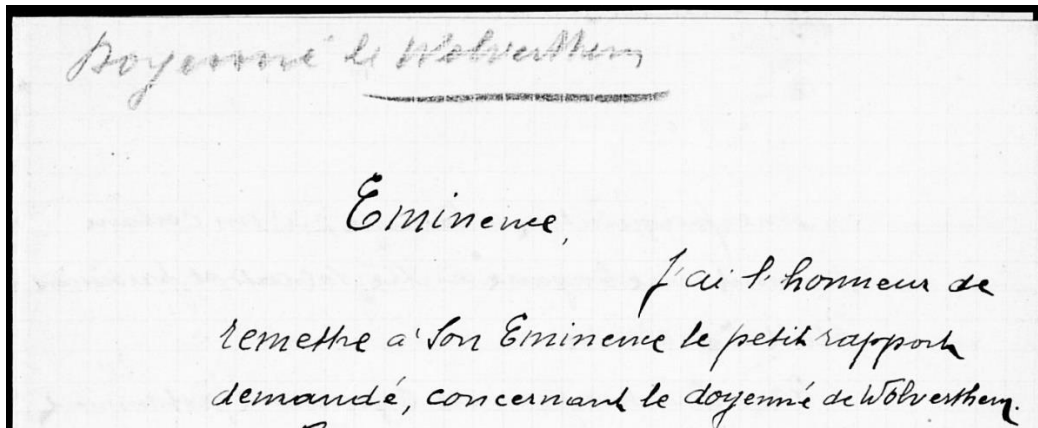 Doyenné de Wolverthem
Eminence,
J'ai l'honneur de
remettre à Son Eminence le petit rapport
demandé, concernant le doyenné de Wolverthem.